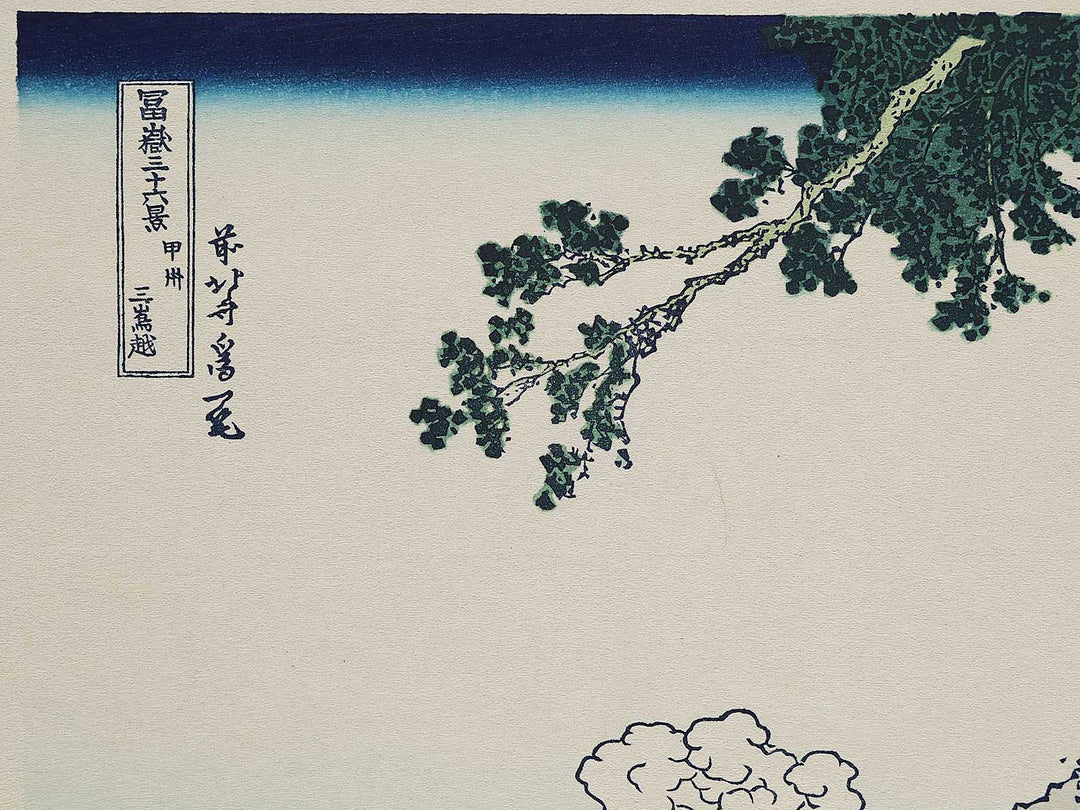 冨嶽三十六景
甲州
三嶌越
前北斎為一筆